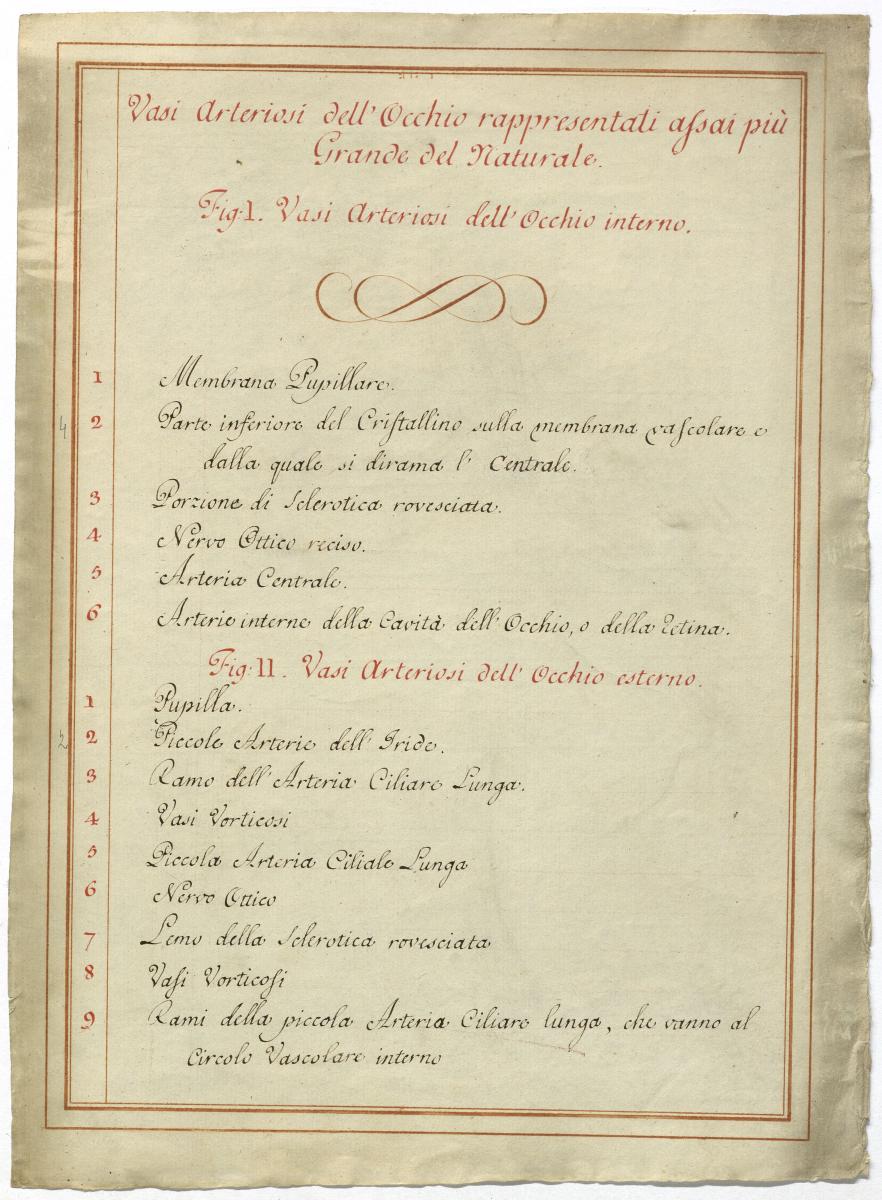 Vasi Arteriosi dell' Occhio rappresentati aſsai più
Grande del Naturale.
Fig: I. Vasi Arteriosi dell' Occhio interno.
1 Membrana Pupillare.
4 2 Parte inferiore del Criſtallino sulla membrana vaſcolare e
dalla quale si dirama l' Centrale.
3 Porzione di Sclerotica rovesciata.
4 Nervo Ottico reciso.
5 Arteria Centrale.
6 Arterie interne della Cavità dell' Occhio, o della Retina.
Fig: II. Vasi Arteriosi dell' Occhio esterno.
1 Pupilla.
2 2 Piccole Arterie dell' Iride.
3 Ramo dell' Arteria Ciliare Lunga.
4 Vasi Vorticosi
5 Piccola Arteria Ciliale Lunga
6 Nervo Ottico
7 Lemo della Sclerotica rovesciata
8 Vaſi Vorticoſi
9 Rami della piccola Arteria Ciliare lunga, che vanno al
Circolo Vascolare interno